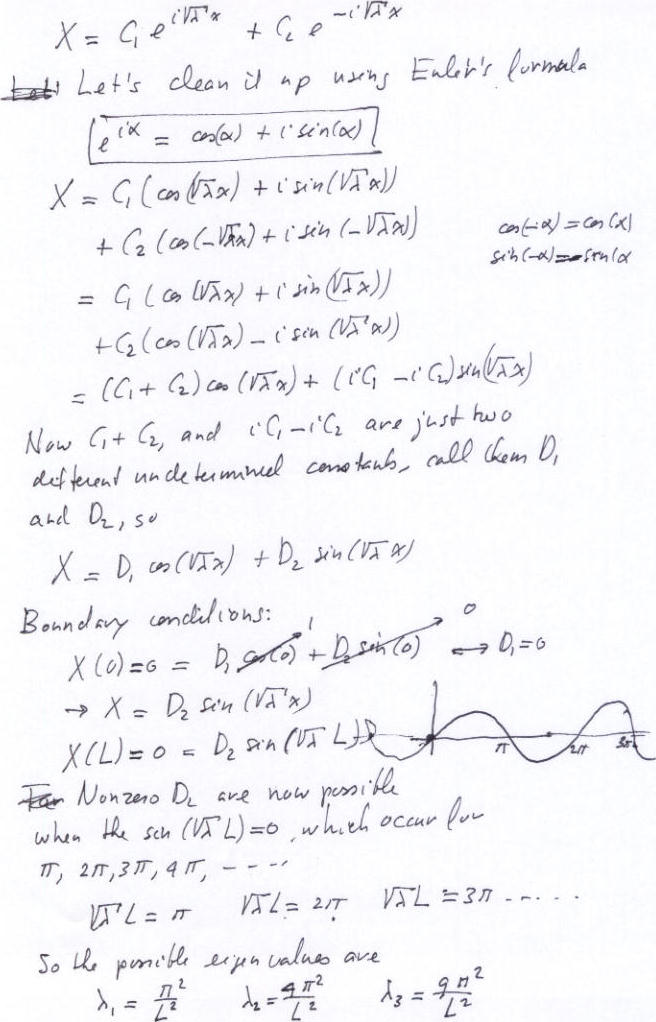 X = C₁ e^{i√λ x} + C₂ e^{-i√λ x}
Let's clean it up using Euler's formula
e^{iα} = cos(α) + i sin(α)
X = C₁(cos(√λx) + i sin(√λx))
+ C₂(cos(-√λx) + i sin(-√λx))
cos(-α) = cos(α)
sin(-α) = -sin(α
= C₁(cos(√λx) + i sin(√λx))
+ C₂(cos(√λx) - i sin(√λx))
= (C₁ + C₂) cos(√λx) + (iC₁ - iC₂) sin(√λx)
Now C₁ + C₂, and iC₁ - iC₂ are just two
different undetermined constants, call them D₁
and D₂, so
X = D₁ cos(√λx) + D₂ sin(√λx)
Boundary conditions:
X(0) = 0 = D₁ cos(0) 1 + D₂ sin(0) 0 ↔ D₁ = 0
→ X = D₂ sin(√λx)
X(L) = 0 = D₂ sin(√λ L)
π 2π 3π
Nonzero D₂ are now possible
when the sin(√λ L) = 0, which occur for
π, 2π, 3π, 4π, - - - -
√λ L = π √λ L = 2π √λ L = 3π . . . . .
So the possible eigenvalues are
λ₁ = π²/L² λ₂ = 4π²/L² λ₃ = 9π²/L²